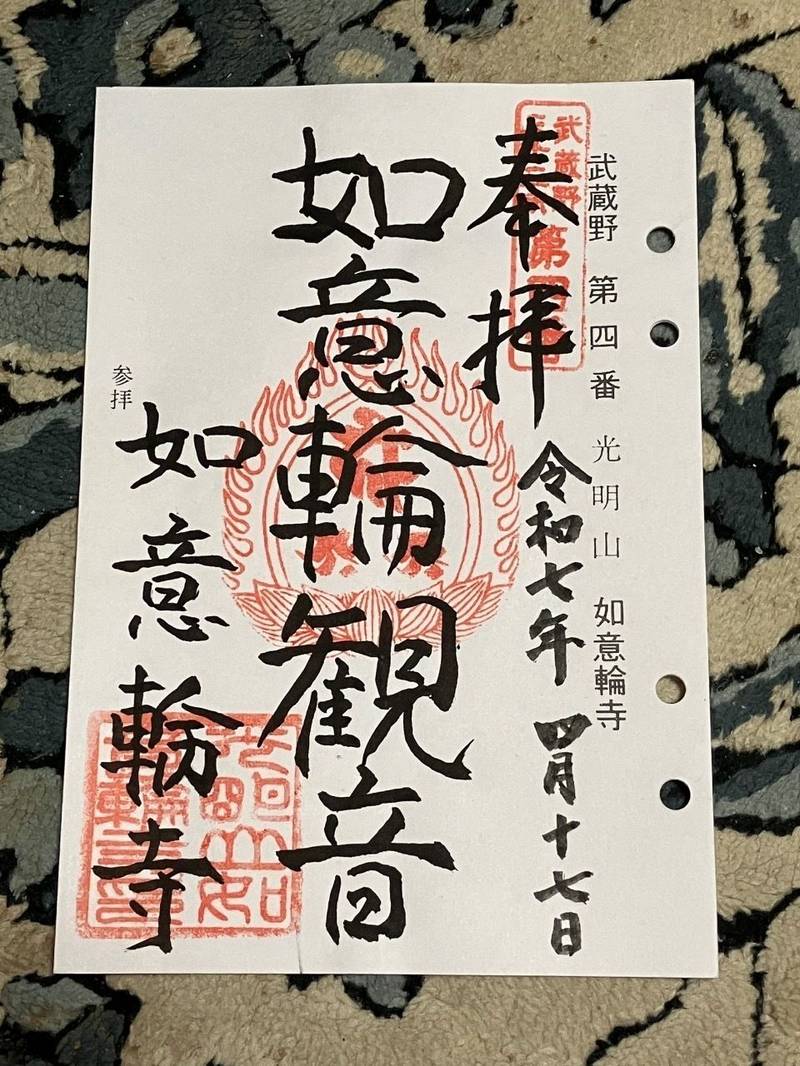 武蔵野 第四番 光明山 如意輪寺
武蔵野
第四番
奉拝
令和七年 四月十七日
如意輪観音
参拝
如意輪寺